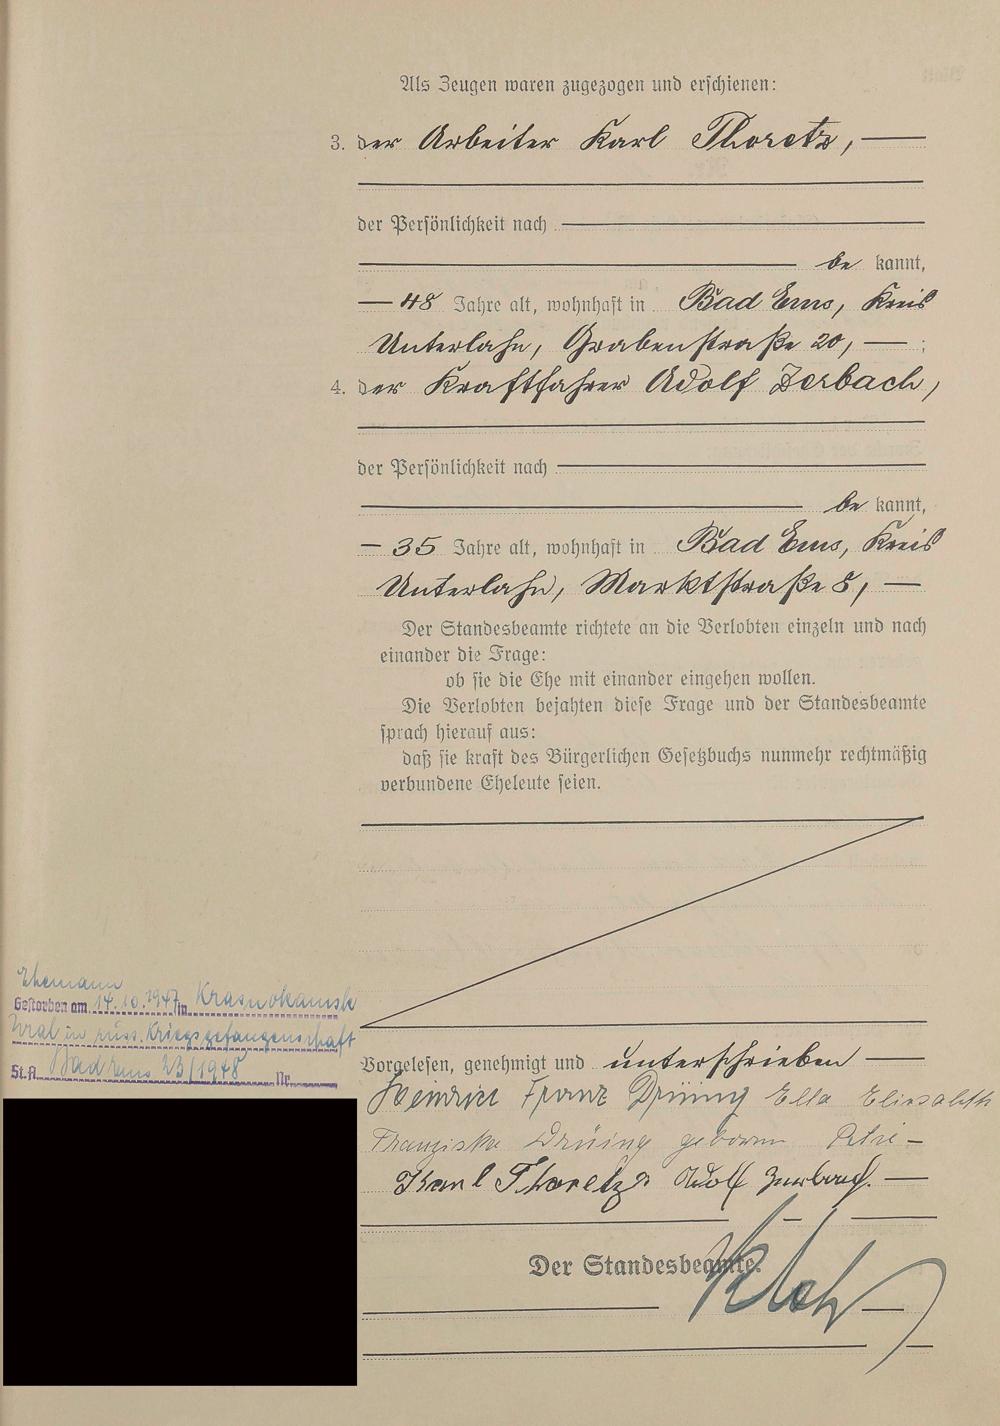 Als Zeugen waren zugezogen und erschienen:
3. der Arbeiter Karl Thoretz,
der Persönlichkeit nach
be kannt,
48 Jahre alt, wohnhaft in Bad Ems, Kreis
Unterlahn, Grabenstraße 20, ;
4. der Kraftfahrer Adolf Zerbach,
der Persönlichkeit nach
be kannt,
35 Jahre alt, wohnhaft in Bad Ems, Kreis
Unterlahn, Marktstraße 8,
Der Standesbeamte richtete an die Verlobten einzeln und nach
einander die Frage:
ob sie die Ehe mit einander eingehen wollen.
Die Verlobten bejahten diese Frage und der Standesbeamte
sprach hierauf aus:
daß sie kraft des Bürgerlichen Gesetzbuchs nunmehr rechtmäßig
verbundene Eheleute seien.
Ehemann
Gestorben am 14.10.1947 in Krasnokamsk
Ural in russ. Kriegsgefangenschaft
St.A. Bad Ems 23/1948 Nr.
Vorgelesen, genehmigt und unterschrieben
Heinrich Franz Drüing Ella Elisabeth
Franziska Drüing geboren Petri
Karl Thoretz Adolf Zerbach.
Der Standesbeamte.